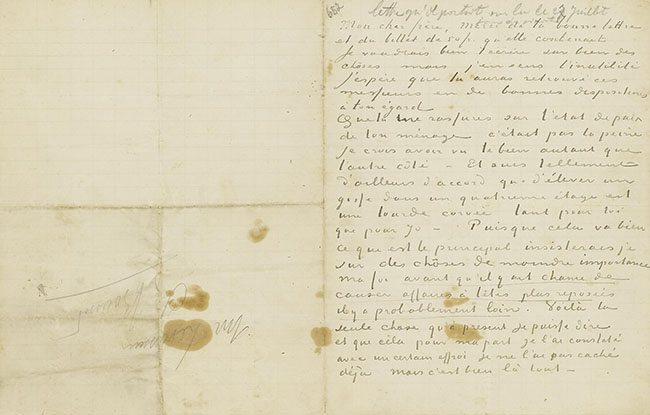 lettre qu'il portait sur lui le 29 juillet
Mon cher frère, merci de ta bonne lettre
et du billet de 50 f. qu'elle contenait
Je voudrais bien t'écrire sur bien des
choses mais j'en sens l'inutilité
j'espère que tu auras retrouvé ces
messieurs en de bonnes dispositions
à ton égard
Que tu me rassures sur l'état de paix
de ton ménage c'était pas la peine
je crois avoir vu le bien autant que
l'autre côté – Et suis tellement
d'ailleurs d'accord que d'élever un
gosse dans un quatrième étage est
une lourde corvée tant pour toi
que pour Jo – Puisque cela va bien
ce que est le principal insisterais je
sur des choses de moindre importance
ma foi avant qu'il y ait chance de
causer affaires à têtes plus reposées
il y a probablement loin. Voilà la
seule chose qu'à présent je puisse dire
et que cela pour ma part je l'ai constaté
avec un certain effroi je ne l'ai pas caché
déjà mais c'est bien là tout –